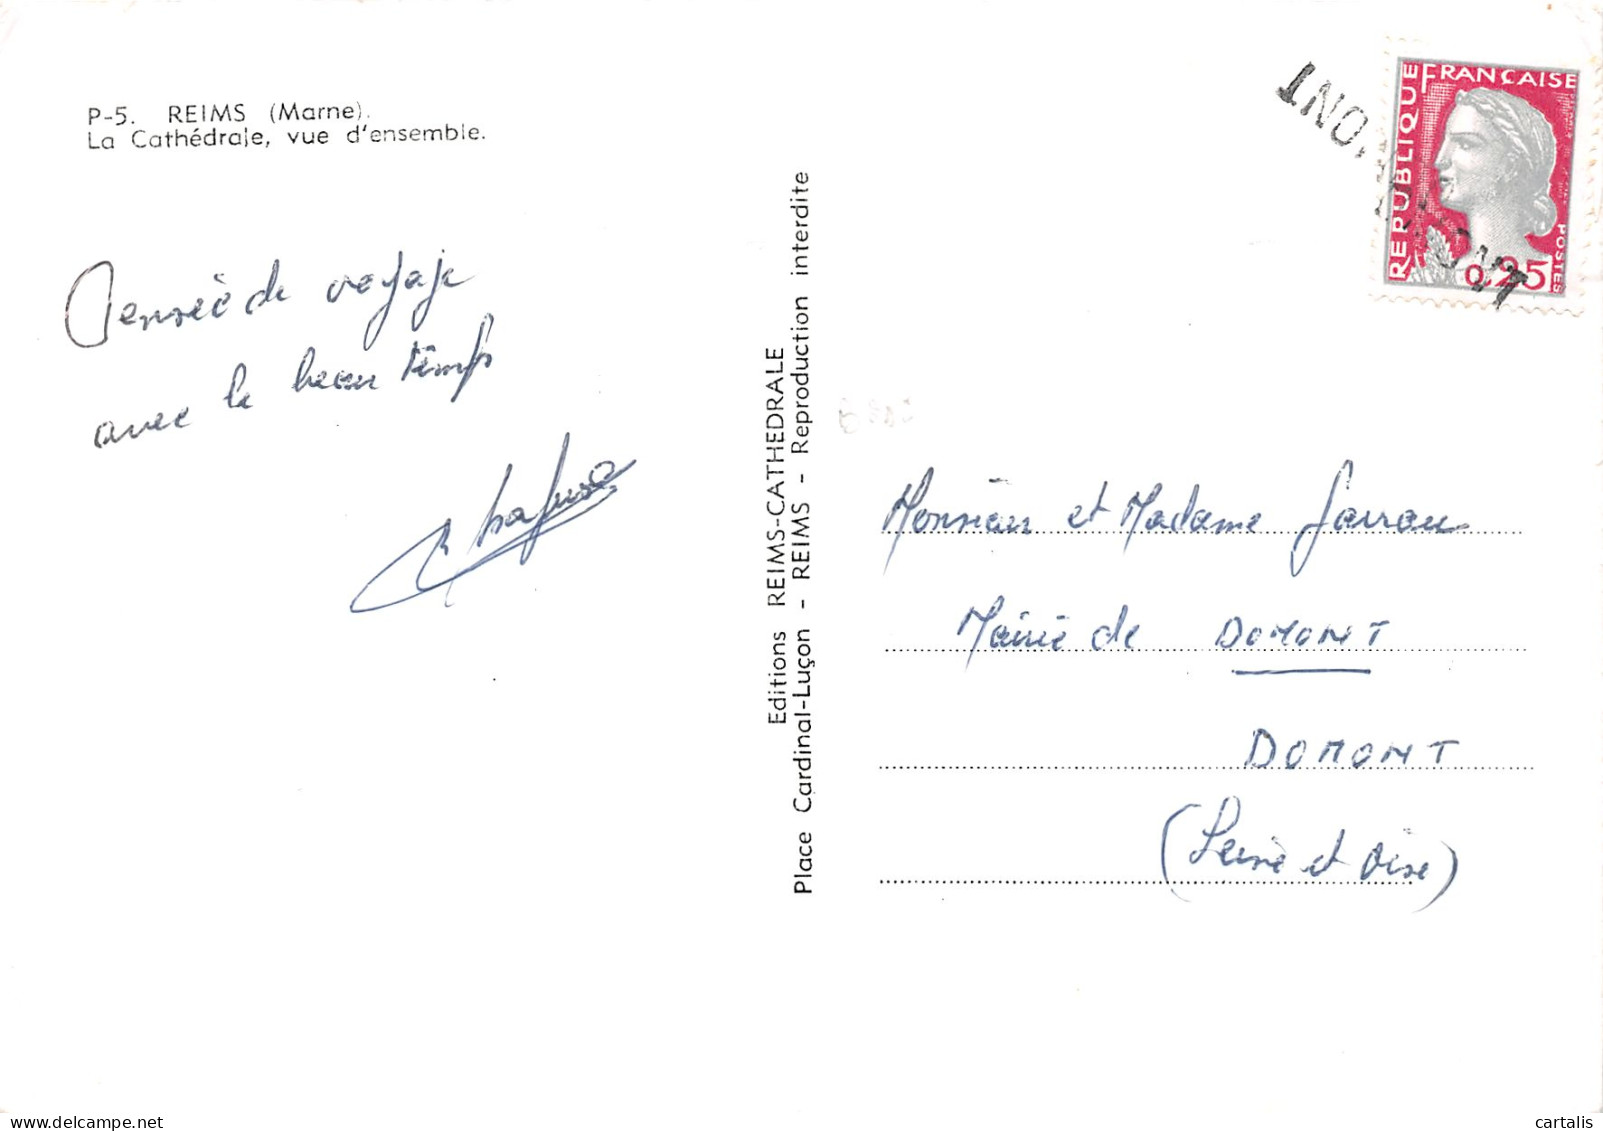 P-5. REIMS (Marne).
La Cathédrale, vue d'ensemble.
Pensée de voyage
avec le beau temps
Editions REIMS-CATHEDRALE
Place Cardinal-Luçon - REIMS - Reproduction interdite
REPUBLIQUE FRANÇAISE
POSTES
0,25
Monsieur et Madame
Mairie de DOMONT
DOMONT
(Seine et Oise)
delcampe.net
cartalis